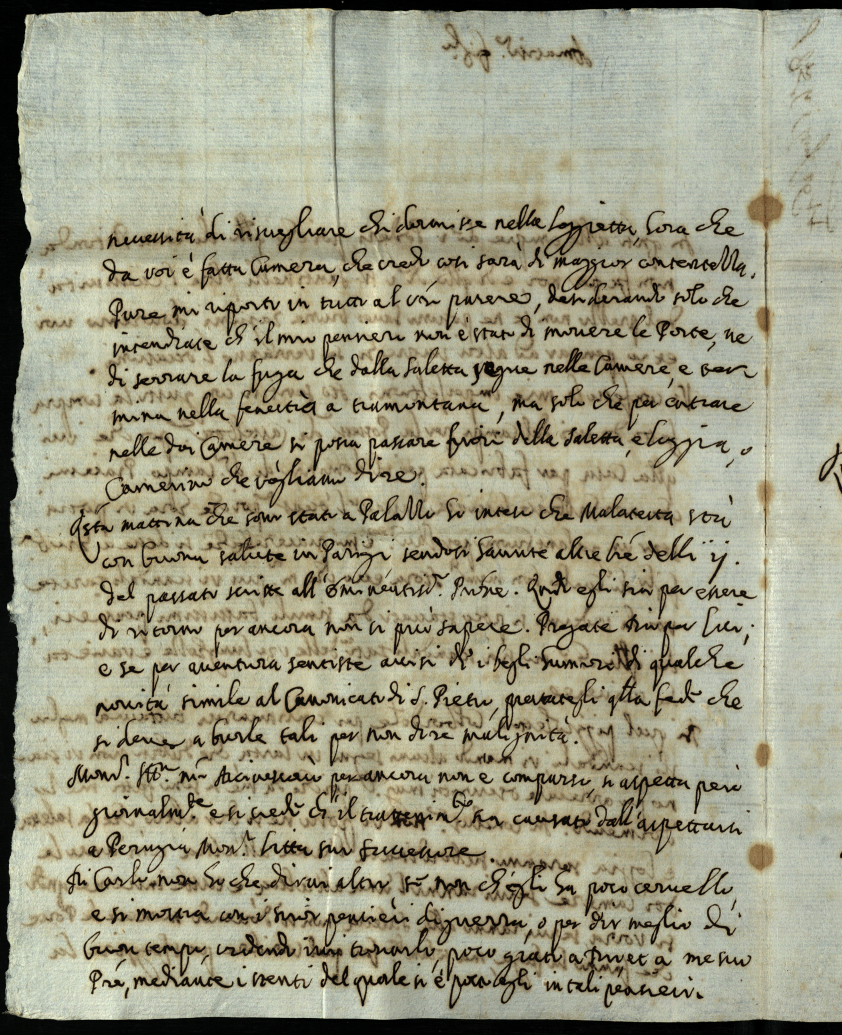 necessità di risvegliare chi dormisse nella Loggietta, hora che
da voi è fatta Camera, che credo così sarà di maggior contentezza.
Pure mi riporto in tutto al vro parere, desiderando solo che
intendiate ch'il mio pensiero non è stato di movere le Porte, ne
di serrare la fuga che dalla Saletta segue nelle Camere, e ter-
mina nella fenestra a tramontana, ma solo che per entrare
nelle doi Camere si possa passare fuori della Saletta, e loggia, o
Camerino che vogliamo dire.
Qsta mattina che sono stato a Palazzo ho inteso che Malatesta stà
con buona salute in Parigi sendosi havute altre lre delli ij.
del passato scritte all'Eminentiss.o Prone. Qndo egli sia per essere
di ritorno per ancora non si può sapere. Pregate Dio per lui,
e se per aventura sentiste avisi di i begli humori di qualche
novità simile al Canonicato di S. Pietro, prestategli qlla fede che
si deve a burle tali per non dire malignità.
Mons.r Ill.mo nro Arcivescovo per ancora non è comparso, si aspetta però
giornalm.te e si crede ch'il trattenim.to sia causato dall'aspettarsi
a Perugia Mon.r suo successore.
Di Carlo non ho che dirvi altro se non ch'egli ha poco cervello,
e si mostra con i suoi pensieri di guerra, o per dir meglio di
buon tempo, poco grato a Dio et a me suo
Pre, mediante i stenti del quale si è posto egli in tali pensieri.